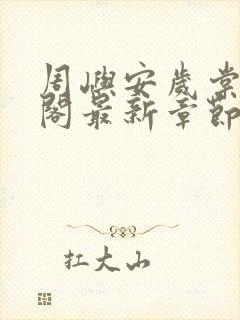 周嶼安歲棠
閣最新章節
扛大山